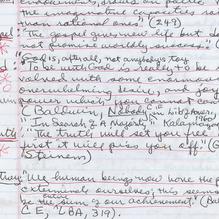 the images that excites
than rational ones." (249)
"The gospel gives new life but do
not promise worldly success."
"God is, after all, not anybody's toy
To be with God is really to be
volved with some enormous
overwhelming desire, and joy
power which you cannot con
(Baldwin, Nobody in Library,
"In Search of a Majority" Kalamazoo
"The truth will set you free
first it will piss you off" (G
Steinem)
"We human beings now have the p
exterminate ourselves; this seem
be the sum of our achievement." (Ba
CE, LBA, 319).